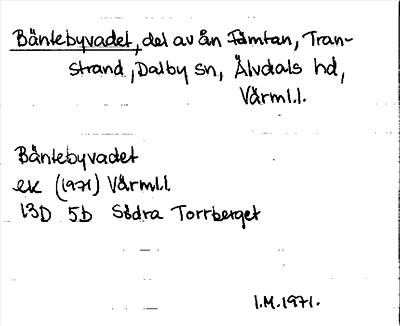 Bäntebyvadet, del av ån Tämtan, Tran-
strand, Dalby sn, Älvdals hd,
Värml.l.
Bäntebyvadet
ek (1971) Värml.l.
13D 5b Södra Torrberget
I.M. 1971.